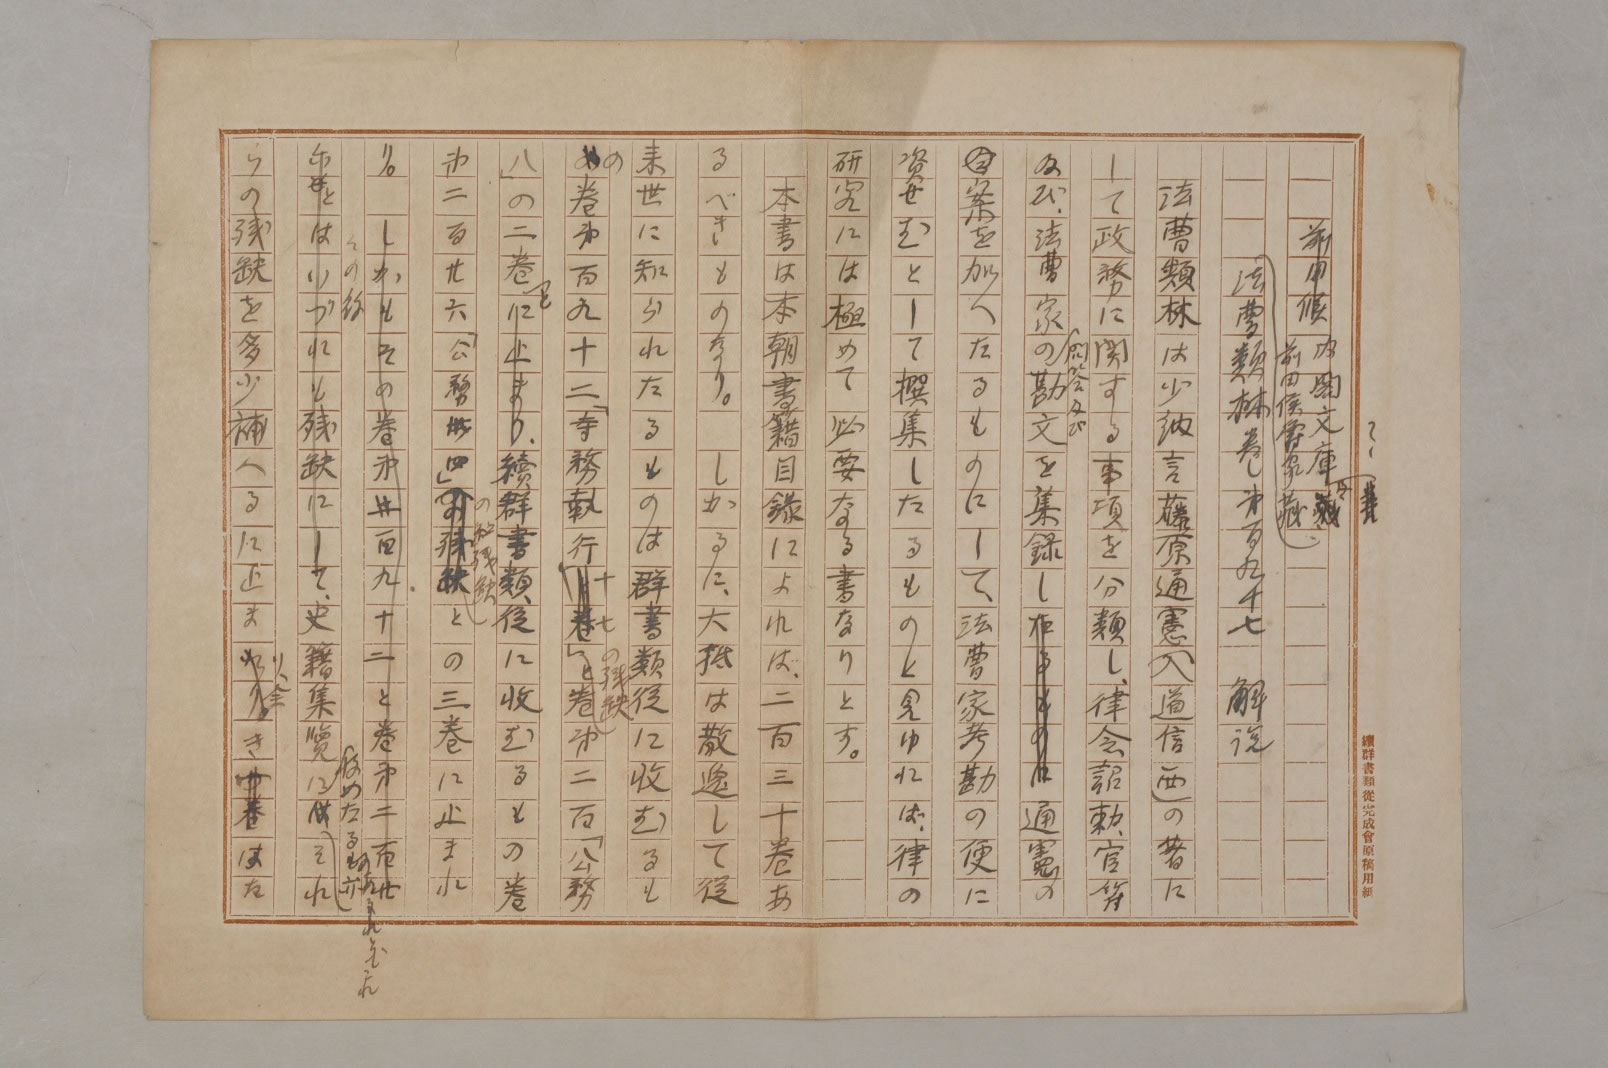 前田侯
内閣文庫蔵
前田侯爵家蔵
法曹類林卷第百九十七　解説
法曹類林は少納言藤原通憲(入道信西)の著に
して政務に関する事項を分類し、律令詔勅、官符
及び、法曹家の問答及び勘文を集録し通憲の
案を加へたるものにして、法曹家考勘の便に
資せむとして撰集したるものと見ゆれば、律の
研究には極めて必要なる書なりとす。
本書は本朝書籍目録によれば、二百三十卷あ
るべきものなり。しかるに、大抵は散逸して從
来世に知られたるものは群書類從に收むるも
の卷第百九十二「寺務執行十七」の残缺と卷第二百「公務
八」の二卷に止まり、續群書類從に收むるもの卷
第二百廿六「公務卅四」の残缺との三卷に止まれ
り。しかもその卷第百九十二と卷第二百廿
はいづれも残缺にして、史籍集覽に收めたるもそれ
らの残缺を多少補へるに止ま
續群書類從完成會原稿用紙